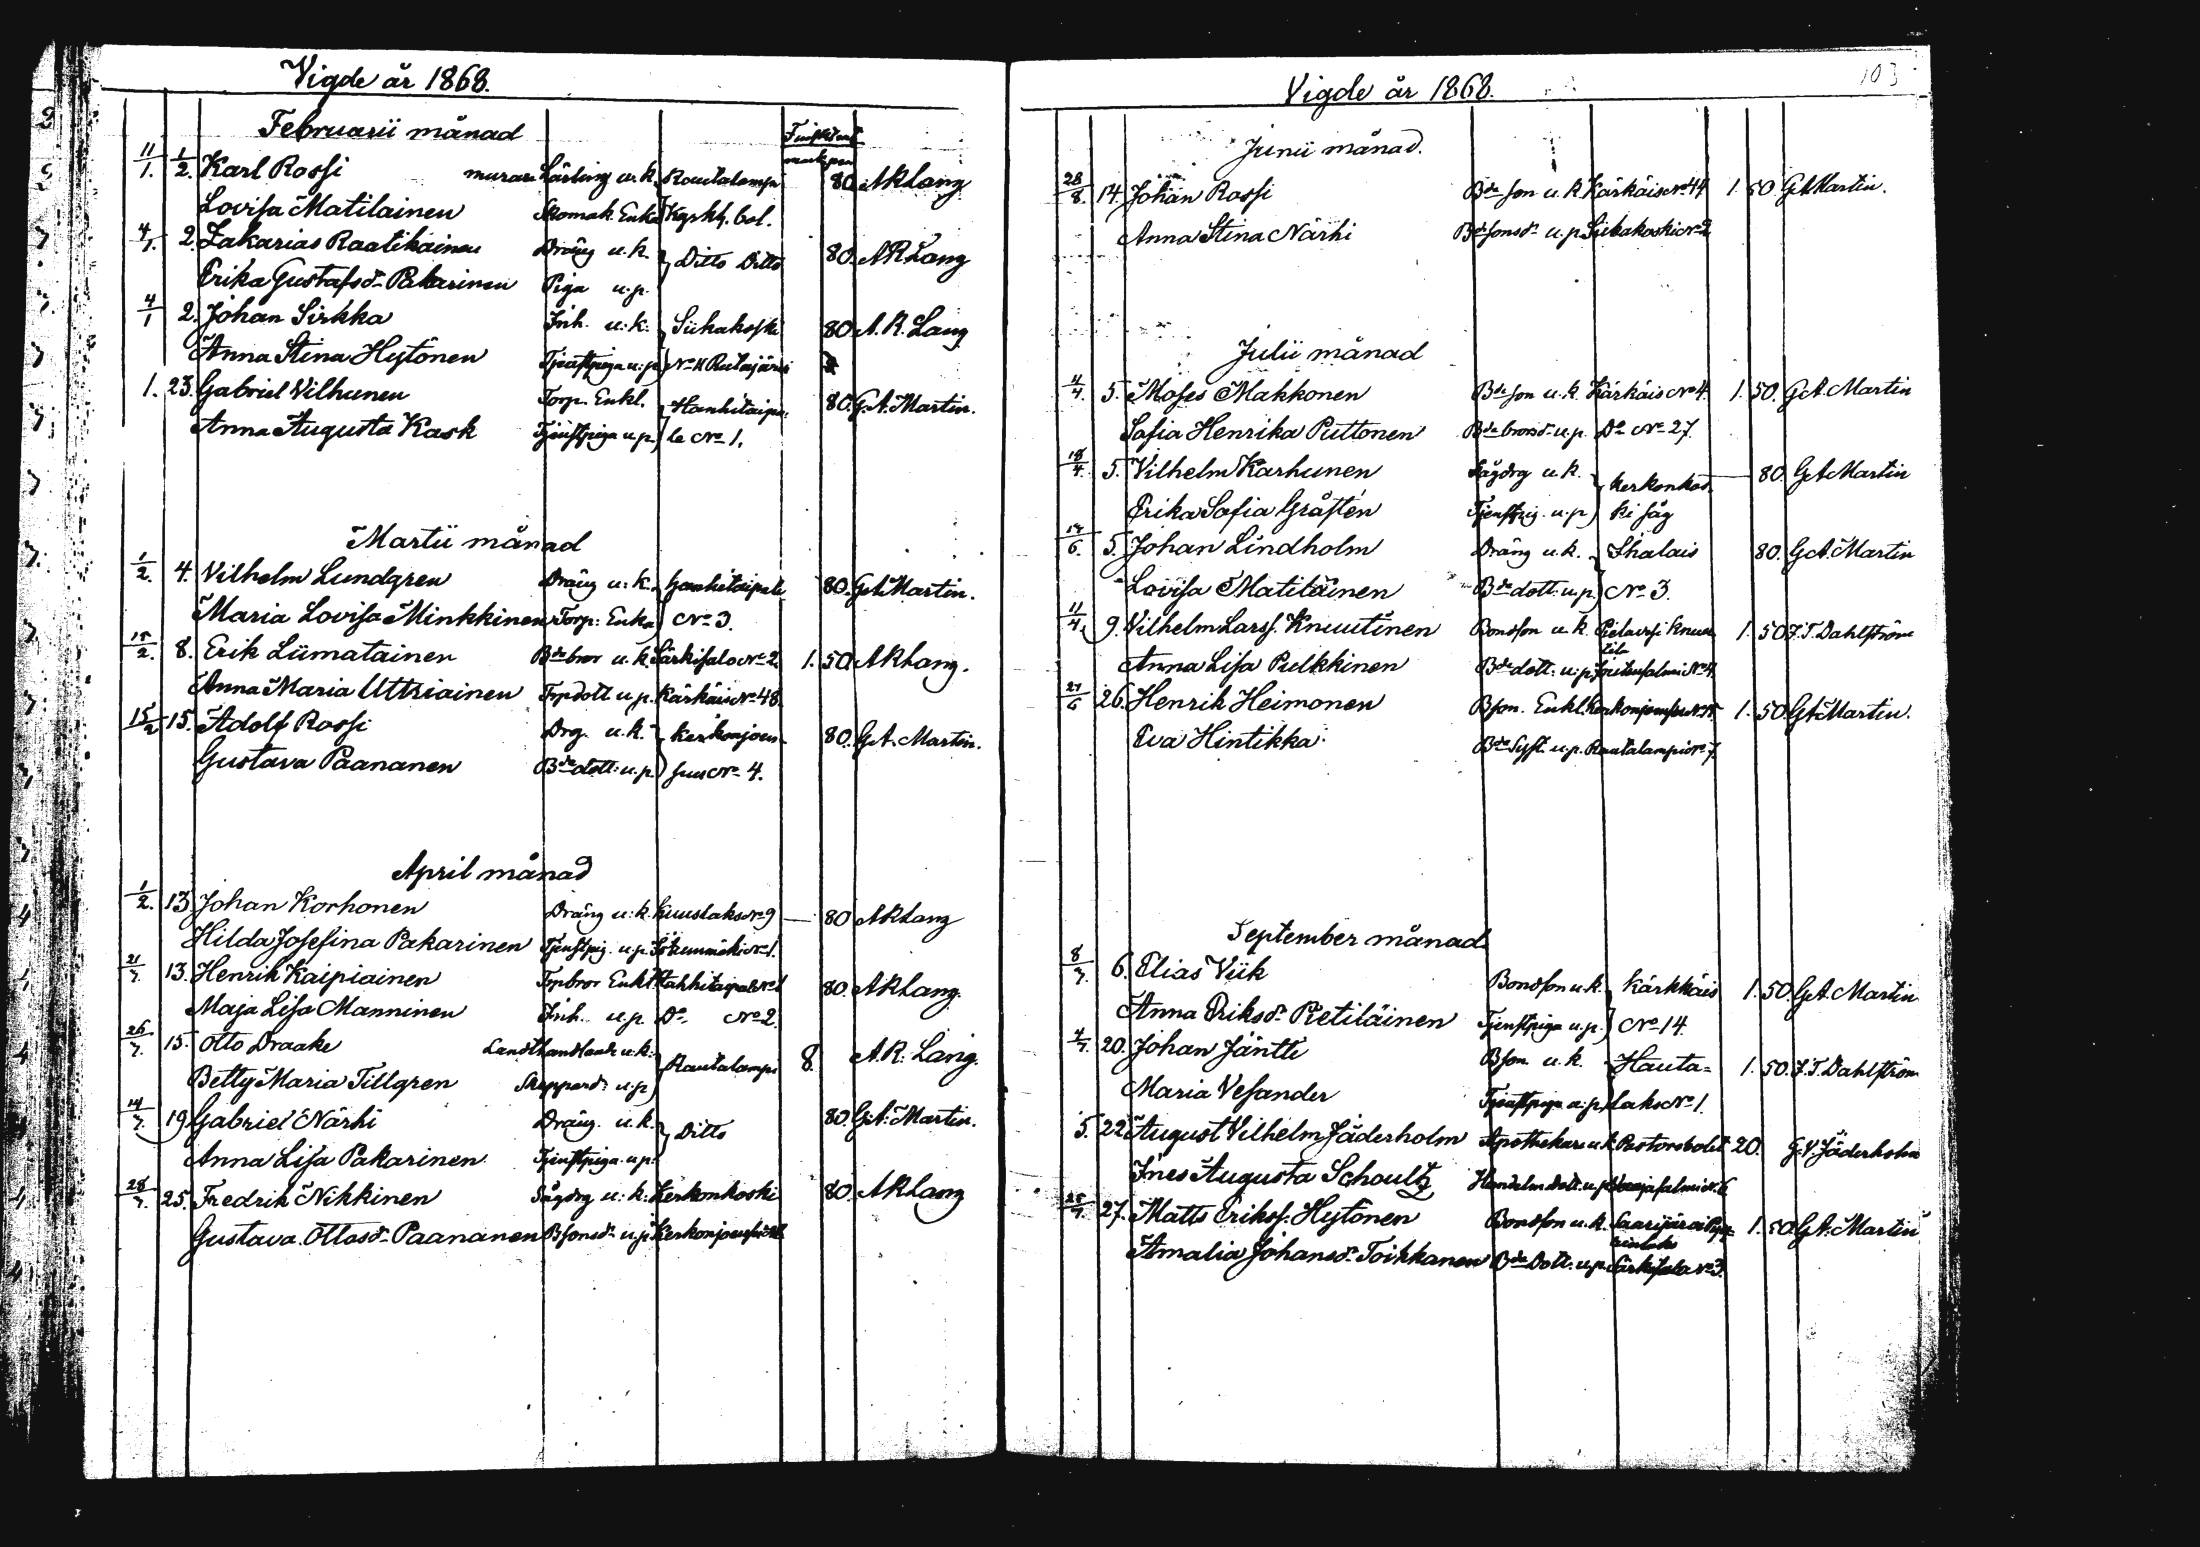 Vigde år 1868.
Februarii månad
11/1. 1/2. Karl Rossi murare Lärling u.k. Rautalampi 80. ARLang
Lovisa Matilainen Skomak. Enka Kyrkh. bol.
4/1. 2. Zakarias Raatikainen Dräng u.k. Ditto Ditto 80. ARLang
Erika Gustafsdr Pakarinen Piga u.p.
4/1 2. Johan Sirkka Inh. u.k. Siikakoski 80. A.R. Lang
Anna Stina Hytönen Tjenstpiga u.p.
1. 23. Gabriel Vilhunen Torp. Enkl. Hanhitaipa- 80. G.A. Martin.
Anna Augusta Kask Tjenstpiga u.p. le No 1.
Martii månad
1/2. 4. Vilhelm Lundgren Dräng u.k. Hanhitaipale 80. GAMartin.
Maria Lovisa Minkkinen Torp. Enka No 3.
15/2. 8. Erik Liimatainen Bdebror u.k. Särkisalo No 2. 1. 50. ARLang.
Anna Maria Uttriainen Trpdott u.p. Kärkäis No 48.
15/2 15. Adolf Rossi Drg. u.k. Kerkonjoen- 80. G.A. Martin.
Gustava Paananen Bdedott. u.p. suu No 4.
April månad
1/2. 13. Johan Korhonen Dräng u.k. Kuuslaks No 9 80 ARLang
Hilda Josefina Pakarinen Tjenstpig. u.p. No 1.
21/7. 13. Henrik Kaipiainen Trpbror Enkl Hahhitaipale No 1 80. ARLang.
Maja Lisa Manninen Inh. u.p. Do No 2.
26/7. 15. Otto Draake Landthandlande u.k. Rautalampi 8. A.R. Lang.
Betty Maria Tillgren Skeppard. u.p.
14/7. 19. Gabriel Närhi Dräng. u.k. Ditto 80. G.A. Martin.
Anna Lisa Pakarinen Tjenstpiga u.p.
28/7. 25. Fredrik Nikkinen Sågdrg u.k. Kerkonkoski 80. ARLang
Gustava Ottosdr Paananen Bsonsdr u.p. Kerkonjoensuu
Vigde år 1868.
103
Junii månad.
28/8. 14. Johan Rossi Bde son u.k. Kärkäis No 44 1. 50 GAMartin.
Anna Stina Närhi Bdesonsdr u.p. Siikakoski No 2
Julii månad
4/4. 5. Moses Makkonen Bde son u.k. Kärkäis No 4. 1. 50. G.A. Martin
Sofia Henrika Puttonen Bdebrorsdr u.p. Do No 27.
18/4. 5. Vilhelm Karhunen Sågdrg u.k. Kerkonkos- 80. GAMartin
Erika Sofia Gråsten Tjenstpig. u.p. ki såg
14/6. 5. Johan Lindholm Dräng u.k. Ihalais 80. G.A. Martin
Lovisa Matilainen Bdedott. u.p. No 3.
11/4. 9. Vilhelm Larss. Knuutinen Bondson u.k. Pielavesi 1. 50. J.T. Dahlström
Anna Lisa Pulkkinen Bdedott. u.p. No 4.
27/6 26. Henrik Heimonen Bson. Enkl. Kerkonjoensuu 1. 50. GAMartin.
Eva Hintikka Bde Syst. u.p. Rautalampi No 7.
September månad
8/7. 6. Elias Viik Bondson u.k. Kärkkäis 1. 50. G.A. Martin
Anna Eriksdr Pietiläinen Tjenstpiga u.p. No 14.
4/7. 20. Johan Jäntti Bson u.k. Hauta- 1. 50. J.T. Dahlström
Maria Vesander Tjenstpiga u.p. laks No 1.
5. 22. August Vilhelm Jäderholm Apothekare u.k. Pastorsbolet 20. G.V. Jäderholm
Ines Augusta Schoultz Handelm. dott. u.p.
25/7. 27. Matts Erikss. Hytönen Bondson u.k. Saarijärvi 1. 50. G.A. Martin
Amalia Johansdr Toikkanen Bde Dott. u.p. Särkisalo No 3.